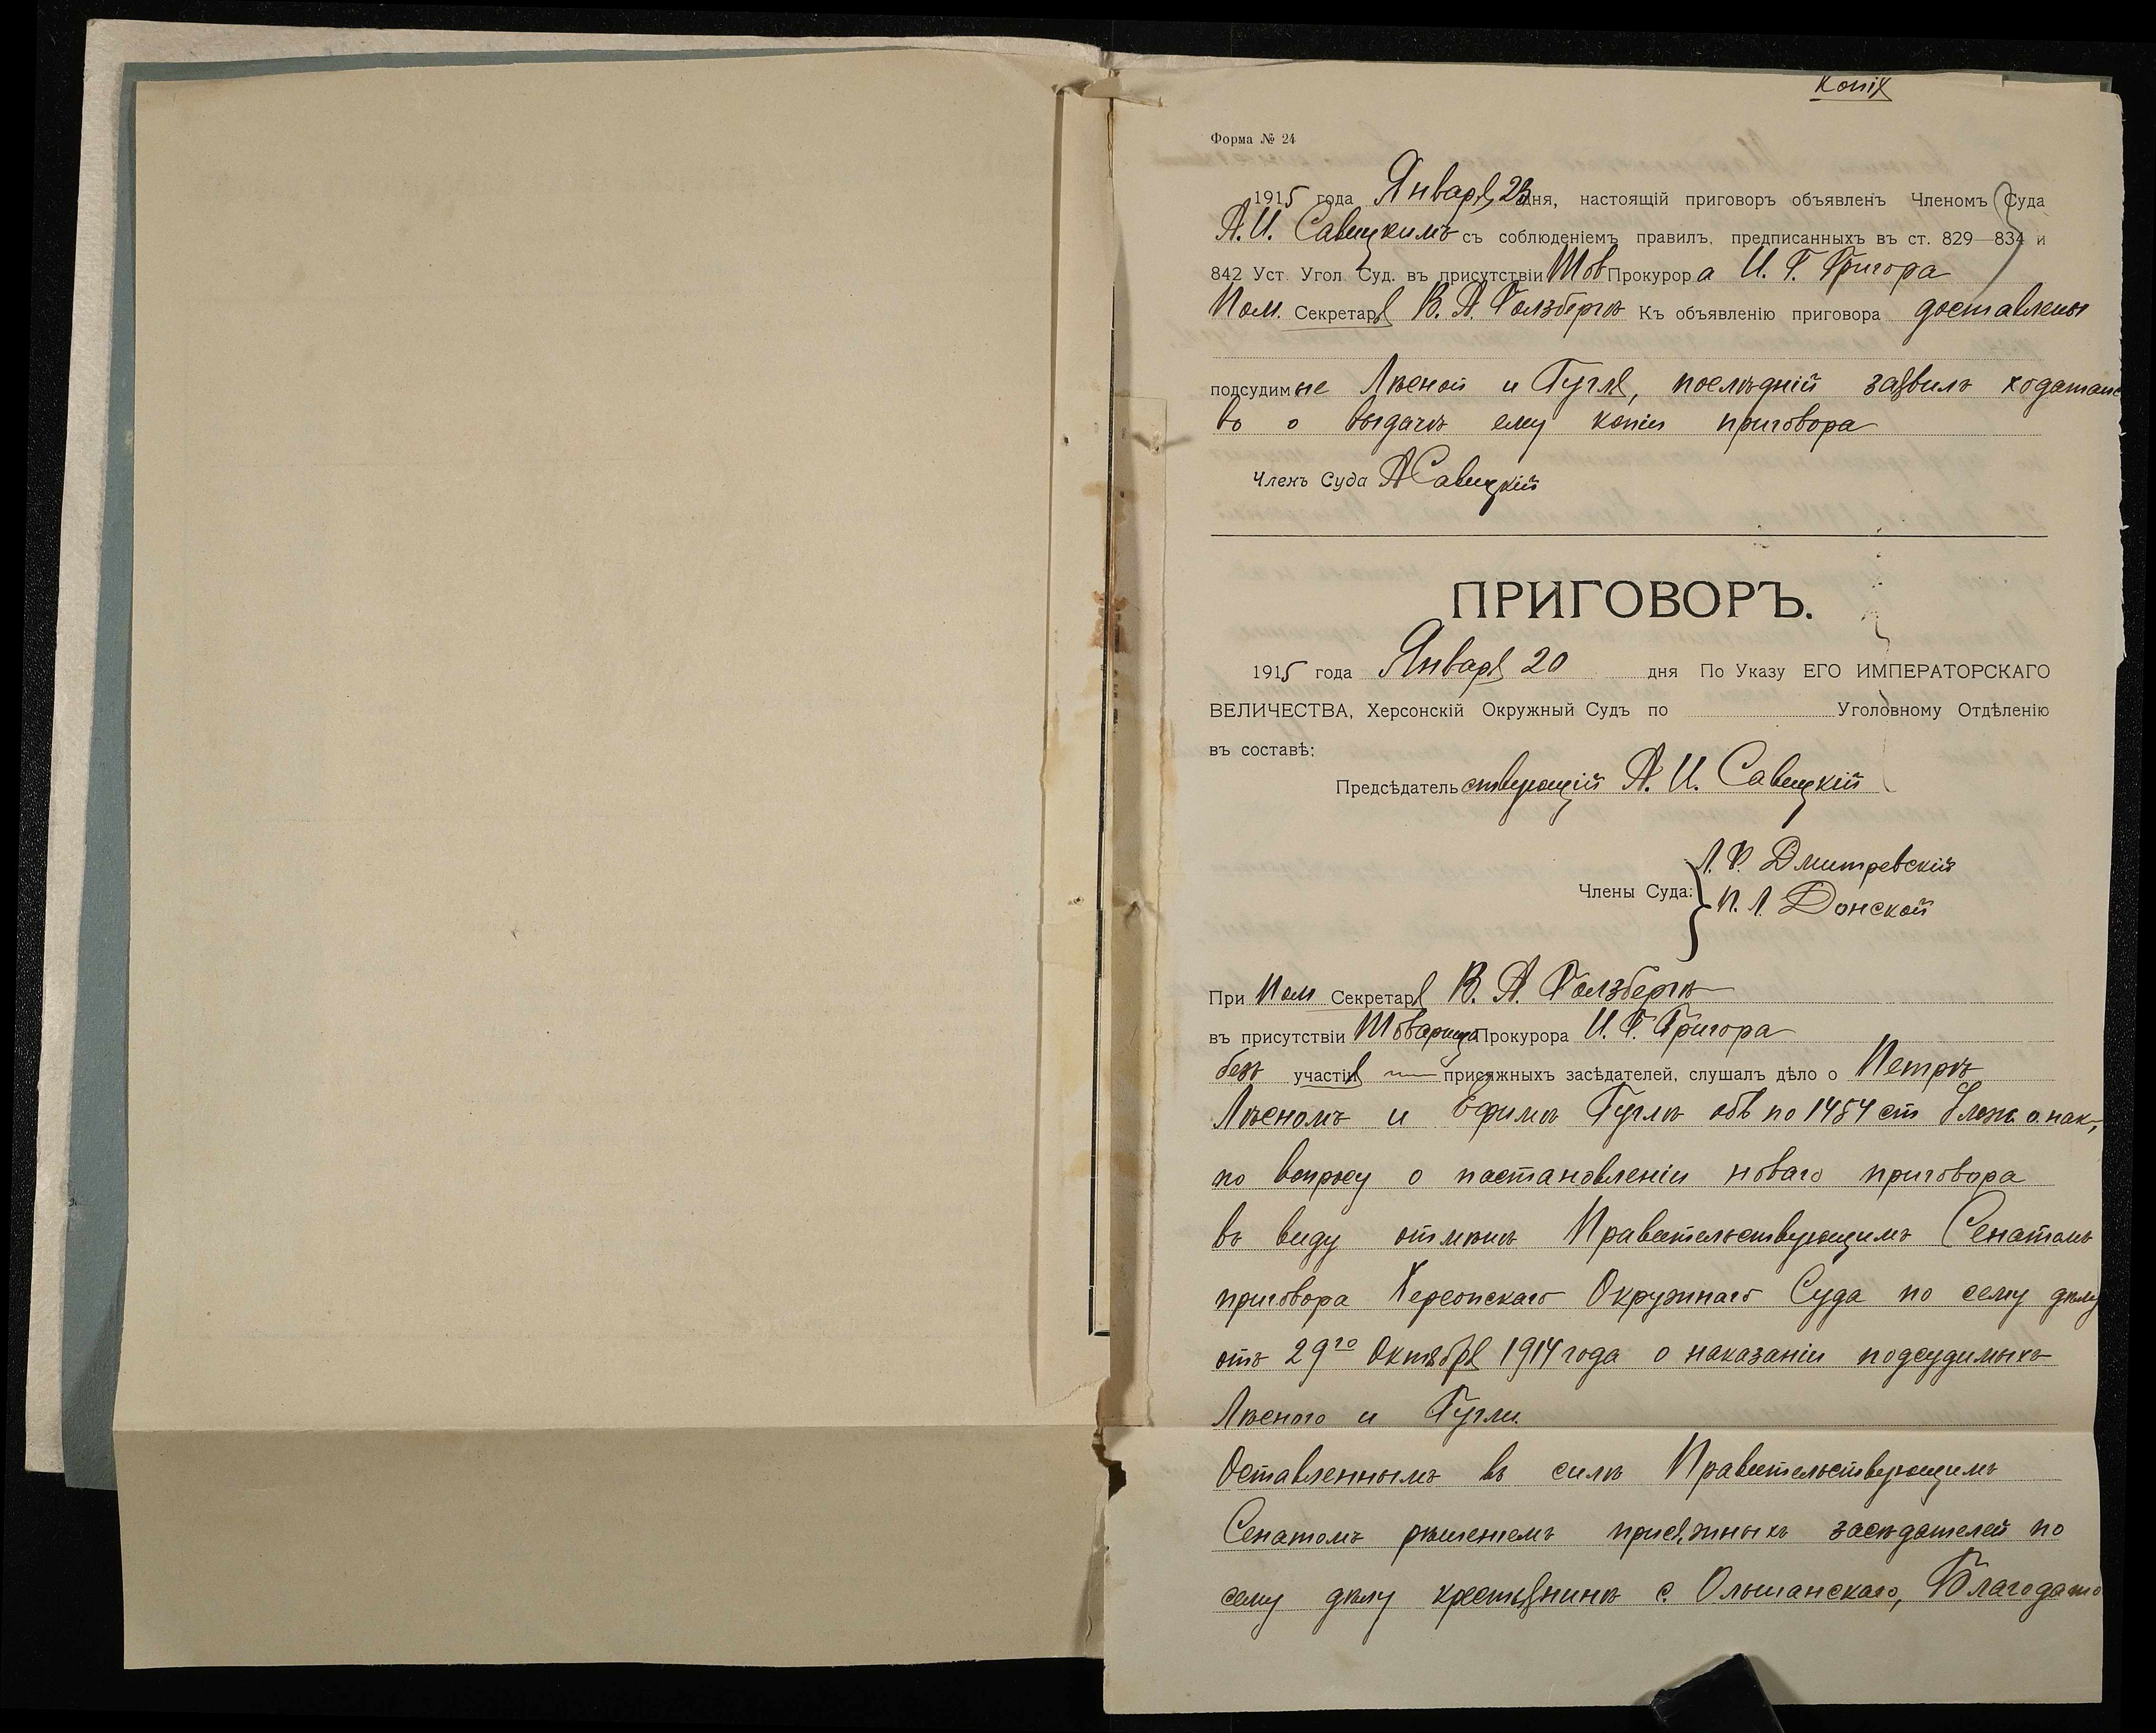 Копія
Форма № 24
1915 года Января 23 дня, настоящій приговоръ объявленъ Членомъ Суда
А. И. Савицкимъ съ соблюденіемъ правилъ, предписанныхъ въ ст. 829—834 и
842 Уст. Угол. Суд. въ присутствіи Тов Прокурора И. Г. Григора
Пом. Секретаря В. А. Голзбергъ Къ объявленію приговора доставлены
подсудимые Лѣсной и Гугля, послѣдній заявилъ ходатайс
во о выдачѣ ему копіи приговора
Членъ Суда А Савицкій
ПРИГОВОРЪ.
1915 года Января 20 дня По Указу ЕГО ИМПЕРАТОРСКАГО
ВЕЛИЧЕСТВА, Херсонскій Окружный Судъ по Уголовному Отдѣленію
въ составѣ:
Предсѣдательствующій А. И. Савицкій
Члены Суда: Л. Ф. Дмитревскій
П. Л. Донской
При Пом Секретаря В. А. Голзбергѣ
въ присутствіи Товарища Прокурора И. Г. Григора
безъ участія присяжныхъ засѣдателей, слушалъ дѣло о Петрѣ
Лѣсномъ и Ефимѣ Гуглѣ обв по 1484 ст Улож. о нак.,
по вопросу о постановленіи новаго приговора
въ виду отмѣны Правительствующимъ Сенатомъ
приговора Херсонскаго Окружнаго Суда по сему дѣлу
отъ 29го Октября 1914 года о наказаніи подсудимыхъ
Лѣсного и Гугли.
Оставленнымъ въ силѣ Правительствующимъ
Сенатомъ рѣшеніемъ присяжныхъ засѣдателей по
сему дѣлу крестьянинъ с. Ольшанскаго, Благодатно